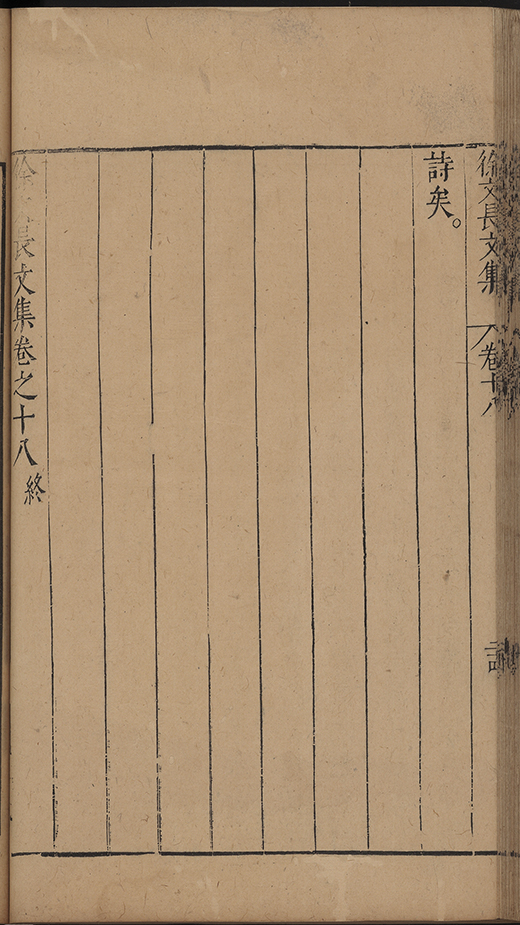 徐文長文集
卷十八
詩矣。
徐文長文集卷之十八終